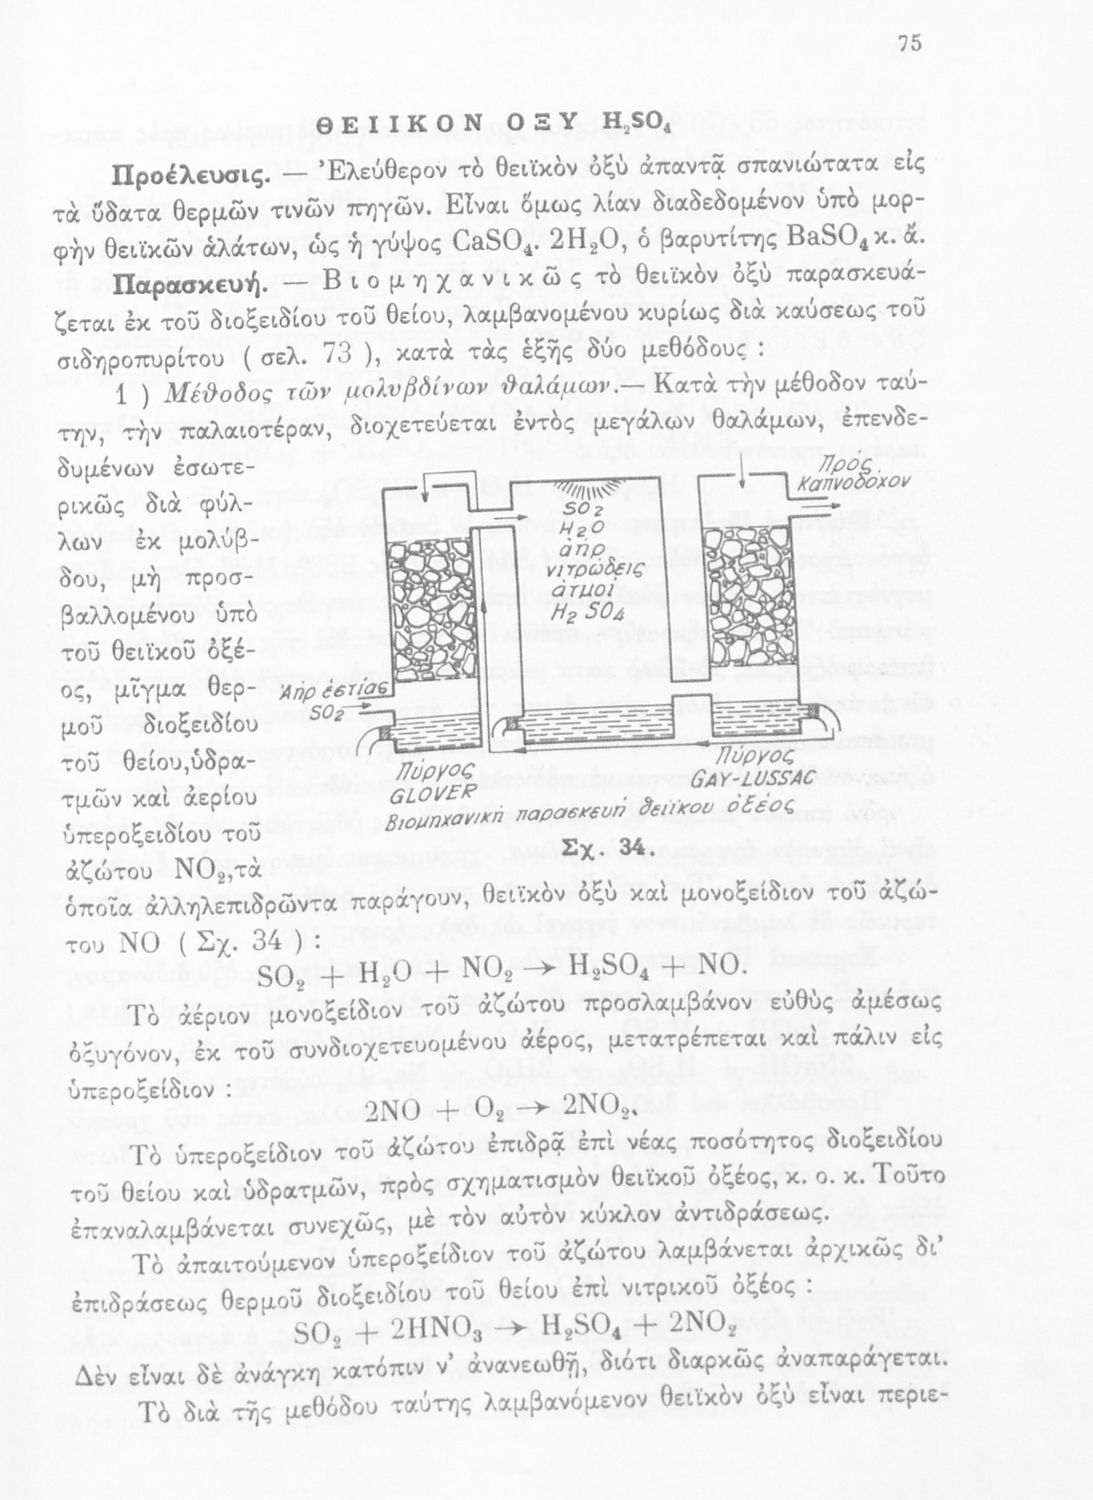 75
ΘΕΙΙΚΟΝ ΟΞΥ H₂SO₄
Προέλευσις. — Ἐλεύθερον τὸ θειϊκὸν ὀξὺ ἀπαντᾷ σπανιώτατα εἰς
τὰ ὕδατα θερμῶν τινῶν πηγῶν. Εἶναι ὅμως λίαν διαδεδομένον ὑπὸ μορ-
φὴν θειϊκῶν ἁλάτων, ὡς ἡ γύψος CaSO₄. 2H₂O, ὁ βαρυτίτης BaSO₄ κ. ἄ.
Παρασκευή. — Βιομηχανικῶς τὸ θειϊκὸν ὀξὺ παρασκευά-
ζεται ἐκ τοῦ διοξειδίου τοῦ θείου, λαμβανομένου κυρίως διὰ καύσεως τοῦ
σιδηροπυρίτου ( σελ. 73 ), κατὰ τὰς ἑξῆς δύο μεθόδους :
1 ) Μέθοδος τῶν μολυβδίνων θαλάμων.— Κατὰ τὴν μέθοδον ταύ-
την, τὴν παλαιοτέραν, διοχετεύεται ἐντὸς μεγάλων θαλάμων, ἐπενδε-
δυμένων ἐσωτε-
ρικῶς διὰ φύλ-
λων ἐκ μολύβ-
δου, μὴ προσ-
βαλλομένου ὑπὸ
τοῦ θειϊκοῦ ὀξέ-
ος, μῖγμα θερ-
μοῦ διοξειδίου
τοῦ θείου,ὑδρα-
τμῶν καὶ ἀερίου
ὑπεροξειδίου τοῦ
ἀζώτου NO₂,τὰ
Πρός
Καπνοδόχον
SO₂
H₂O
ἀήρ
νιτρώδεις
ἀτμοί
H₂ SO₄
Ἀήρ ἑστίας
SO₂
Πύργος
GLOVER
Πύργος
GAY-LUSSAC
Βιομηχανική παρασκευή θειϊκού ὀξέος
Σχ. 34.
ὁποῖα ἀλληλεπιδρῶντα παράγουν, θειϊκὸν ὀξὺ καὶ μονοξείδιον τοῦ ἀζώ-
του NO ( Σχ. 34 ) :
SO₂ + H₂O + NO₂ → H₂SO₄ + NO.
Τὸ ἀέριον μονοξείδιον τοῦ ἀζώτου προσλαμβάνον εὐθὺς ἀμέσως
ὀξυγόνον, ἐκ τοῦ συνδιοχετευομένου ἀέρος, μετατρέπεται καὶ πάλιν εἰς
ὑπεροξείδιον :
2NO + O₂ → 2NO₂.
Τὸ ὑπεροξείδιον τοῦ ἀζώτου ἐπιδρᾷ ἐπὶ νέας ποσότητος διοξειδίου
τοῦ θείου καὶ ὑδρατμῶν, πρὸς σχηματισμὸν θειϊκοῦ ὀξέος, κ. ο. κ. Τοῦτο
ἐπαναλαμβάνεται συνεχῶς, μὲ τὸν αὐτὸν κύκλον ἀντιδράσεως.
Τὸ ἀπαιτούμενον ὑπεροξείδιον τοῦ ἀζώτου λαμβάνεται ἀρχικῶς δι’
ἐπιδράσεως θερμοῦ διοξειδίου τοῦ θείου ἐπὶ νιτρικοῦ ὀξέος :
SO₂ + 2HNO₃ → H₂SO₄ + 2NO₂
Δὲν εἶναι δὲ ἀνάγκη κατόπιν ν’ ἀνανεωθῇ, διότι διαρκῶς ἀναπαράγεται.
Τὸ διὰ τῆς μεθόδου ταύτης λαμβανόμενον θειϊκὸν ὀξὺ εἶναι περιε-